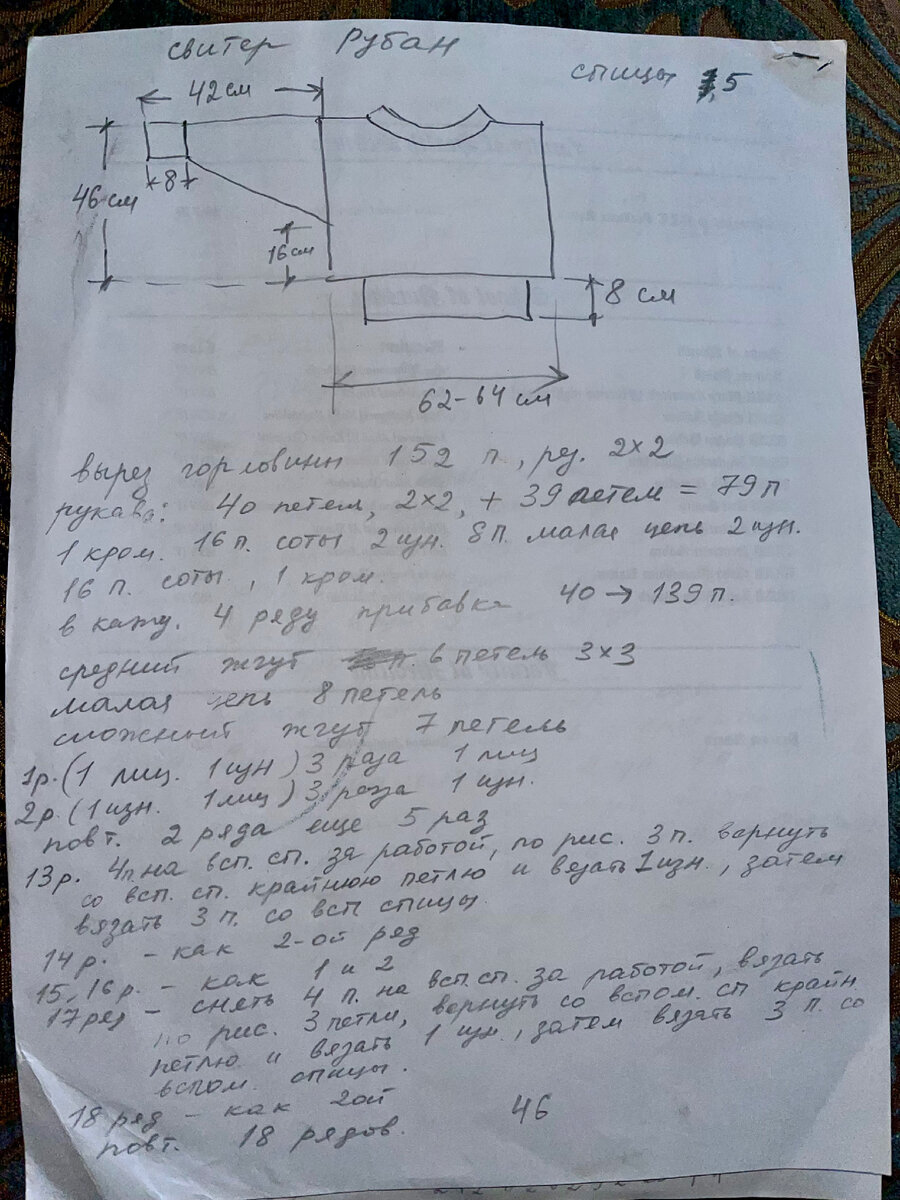 свитер Рубан
спицы 5
42 см
8
46 см
16 см
8 см
62-64 см
вырез горловины 152 п, рез. 2х2
рукава: 40 петель, 2х2, + 39 петель = 79 п
1 кром. 16 п. соты 2 изн. 8 п. малая цепь 2 изн.
16 п. соты, 1 кром.
в кажд. 4 ряду прибавка 40 → 139 п.
средний жгут 6 петель 3х3
малая цепь 8 петель
сложный жгут 7 петель
1р. (1 лиц. 1 изн) 3 раза 1 лиц
2р. (1 изн. 1 лиц) 3 раза 1 изн.
повт. 2 ряда еще 5 раз
13р. 4п на всп. сп. за работой, по рис. 3 п. вернуть
со всп. сп. крайнюю петлю и вязать 1 изн., затем
вязать 3 п. со всп спицы.
14 р. - как 2-ой ряд
15, 16 р. - как 1 и 2
17 ряд - снять 4 п. на всп. сп. за работой, вязать
по рис. 3 петли, вернуть со вспом. сп крайн.
петлю и вязать 1 изн., затем вязать 3 п. со
вспом. спицы.
18 ряд - как 2ой
повт. 18 рядов.
46